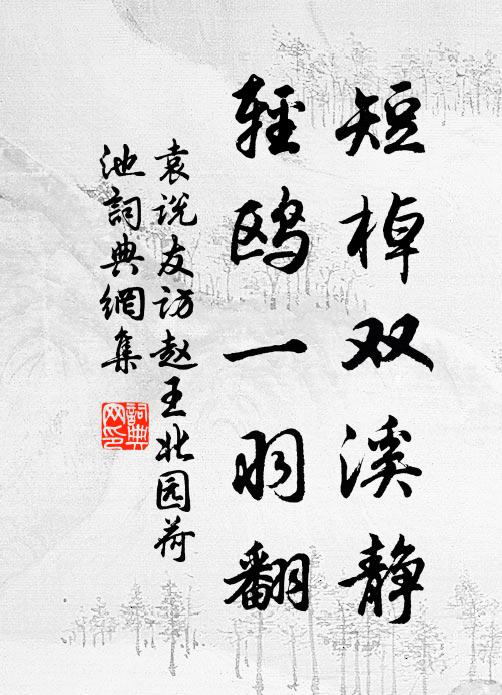 短棹双溪静
轻鸥一羽翻
袁说友访赵王北园荷
池詞典網集
詞典
网印